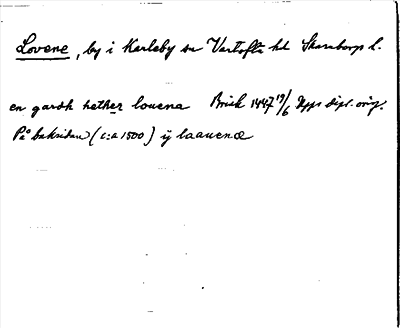 Lovene, by i Karleby sn Vartofta hd Skaraborgs l.
en gardh hether louena Brisk 1447 19/6 Upps dipl. orig.
På baksidan (c:a 1500) ij laauenæ